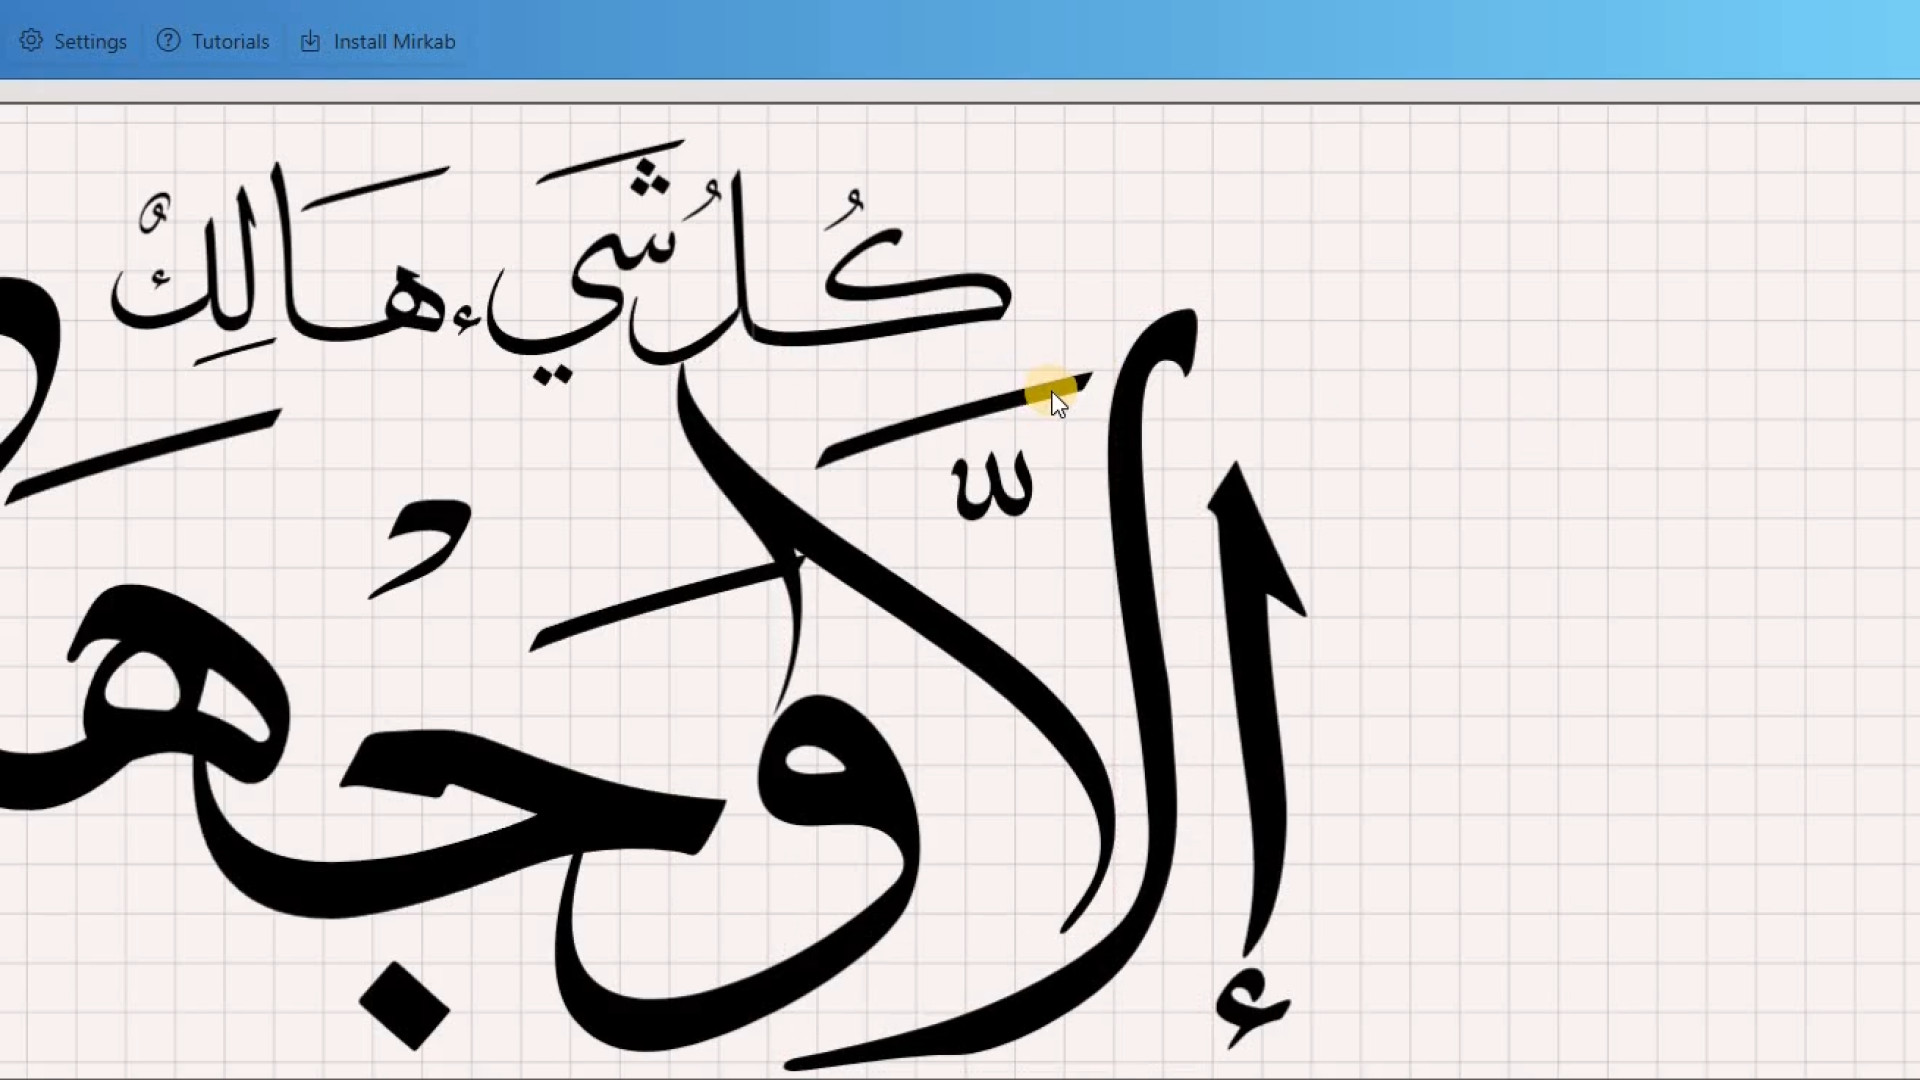 Settings
Tutorials
Install Mirkab
كُلُ شَيء هَالِكٌ
إلَّا وَجْهَه